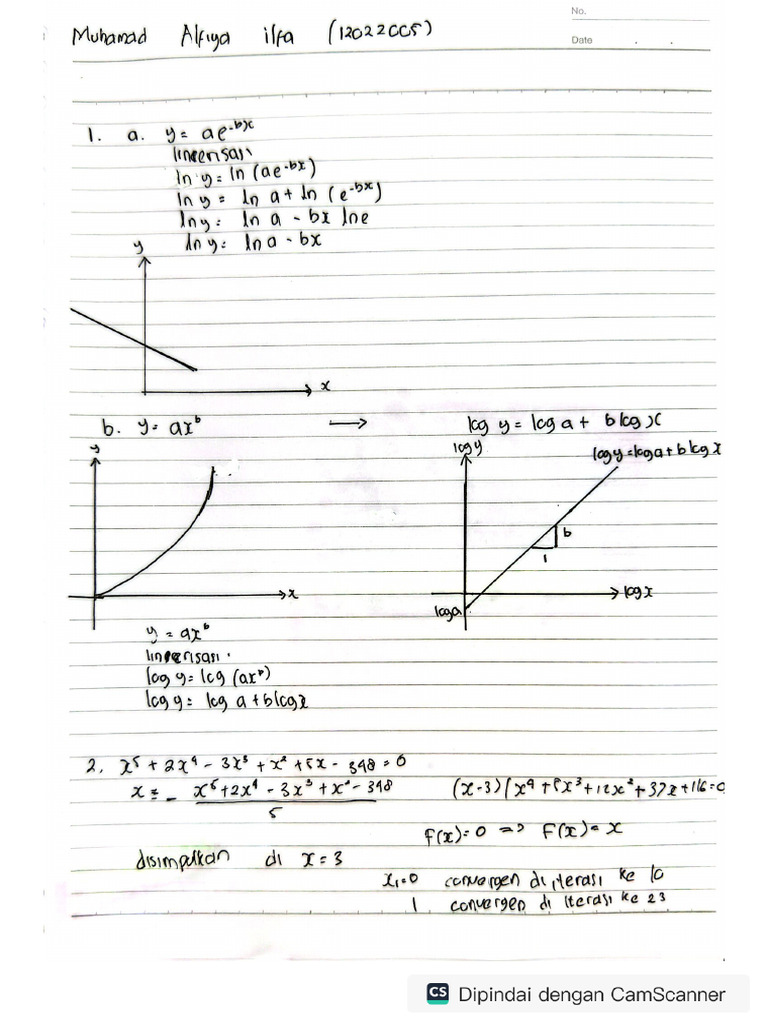 No.
Muhamad Alfiya ilfa (12022005)
Date . .
1. a. y = ae^-bx
linearisasi
ln y = ln (ae^-bx)
ln y = ln a + ln (e^-bx)
ln y = ln a - bx ln e
ln y = ln a - bx
y
x
b. y = ax^b → log y = log a + b log x
y
log y
log y = log a + b log x
b
1
x
log x
log a
y = ax^b
linearisasi
log y = log (ax^b)
log y = log a + b log x
2. x^5 + 2x^4 - 3x^3 + x^2 + 5x - 348 = 0
x = - x^5 + 2x^4 - 3x^3 + x^2 - 348 (x-3)(x^4 + 5x^3 + 12x^2 + 37x + 116 = 0
5
f(x) = 0 => F(x) = x
disimpulkan di x = 3
x1 = 0 convergen di iterasi ke 10
1 convergen di iterasi ke 23
CS Dipindai dengan CamScanner